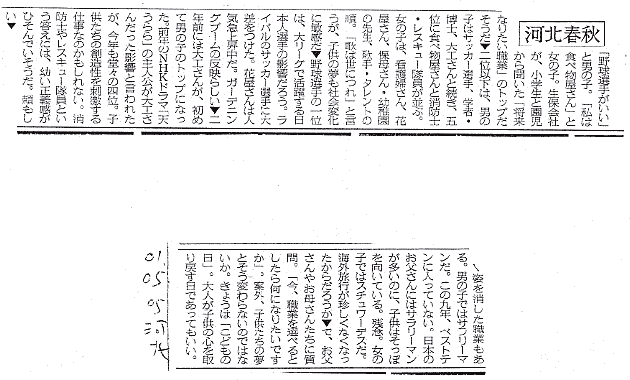 河北春秋
「野球選手がいい」
と男の子。「私は
食べ物屋さん」と
女の子。生保会社
が、小学生と園児
から聞いた「将来
なりたい職業」のトップだ
そうだ▼二位以下は、男の
子はサッカー選手、学者・
博士、大工さんと続き、五
位に食べ物屋さんと消防士
・レスキュー隊員が並ぶ。
女の子は、看護婦さん、花
屋さん、保母・幼稚園
の先生、歌手・タレントの
順。「歌は世につれ」と言
うが、子供の夢も社会変化
に敏感だ▼野球選手の一位
は、大リーグで活躍する日
本人選手の影響だろう。ラ
イバルのサッカー選手に大
差をつけた。花屋さんは人
気急上昇中だ。ガーデニン
グブームの反映らしい▼二
年前には大工さんが、初め
て男の子のトップになっ
た。前年のNHKドラマ「天
うらら」の主人公が大工さ
んだった影響と言われた
が、今年も堂々の四位。子
供たちの創造性を刺激する
仕事なのかもしれない。消
防士やレスキュー隊員とい
う答えは、幼い正義感が
ひそんでいそうだ。頼もし
い▼
姿を消した職業もあ
る。男の子ではサラリーマ
ンだ。この九年、ベストテ
ンに入っていない。日本の
お父さんにはサラリーマン
が多いのに、子供はそっぽ
を向いている。残念。女の
子ではスチュワーデスだ。
海外旅行が珍しくなくなっ
たからだろうか▼で、お父
さんやお母さんたちに質
問。「今、職業を選べると
したら何になりたいです
か」。案外、子供たちの夢
とそう変わらないのではな
いか。きょうは「こどもの
日」。大人が子供の心を取
り戻す日であってもいい。
01.05.05 河北